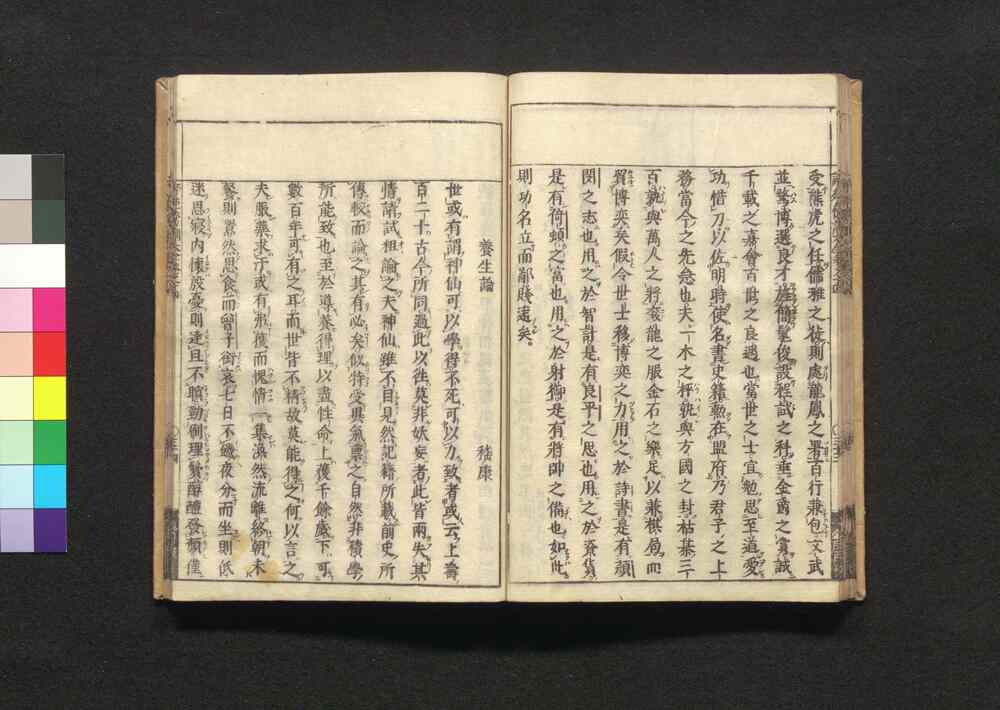 受熊虎之任儒雅之徒則處龍鳳之署百行兼包文武
並騖博選良才旌簡髦俊設程試之科垂金爵之賞誠
千載之嘉會百世之良遇也當世之士宜勉思至道愛
功惜力以佐明時使名書史籍勳在盟府乃君子之上
務當今之先急也夫一木之枰孰與方國之封枯棊三
百孰與萬人之將袞龍之服金石之樂足以兼棋局而
貿博奕矣假令世士移博奕之力用之於詩書是有顔
閔之志也用之於智計是有良平之思也用之於資貨
是有猗頓之富也用之於射御是有將帥之備也如此
則功名立而鄙賤遠矣
養生論 嵇康
世或有謂神仙可以學得不死可以力致者或云上壽
百二十古今所同過此以往莫非妖妄者此皆兩失其
情請試粗論之夫神仙雖不目見然記籍所載前史所
傳較而論之其有必矣似特受異氣禀之自然非積學
所能致也至於導養得理以盡性命上獲千餘歳下可
數百年可有之耳而世皆不精故莫能得之何以言之
夫服藥求汗或有弗獲而愧情一集渙然流離終朝未
餐則囂然思食而曾子銜哀七日不飢夜分而坐則低
迷思寢内懷殷憂則達旦不瞑勁刷理鬢醇醴發顔僅